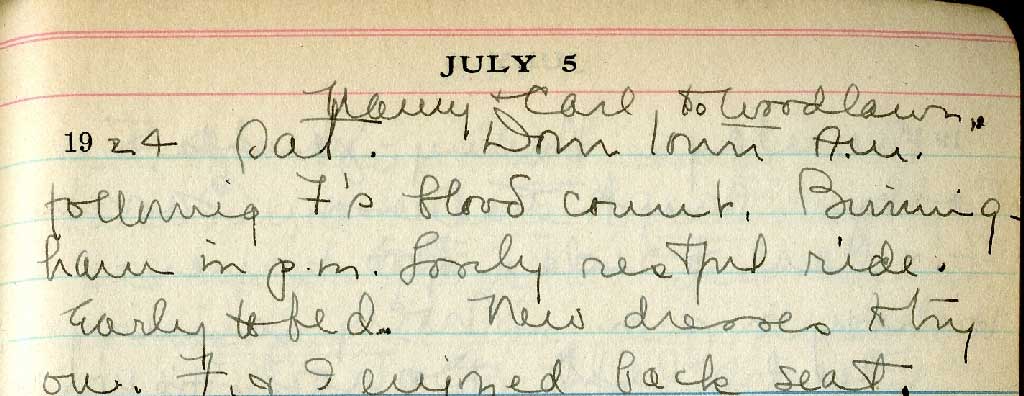 JULY 5
Harry & Carl to Woodlawn.
1924 Sat. Down town A.M.
following F's blood count. Birming-
ham in p.m. Lovely restful ride.
Early to bed. New dresses to try
on. F. & I enjoyed back seat.